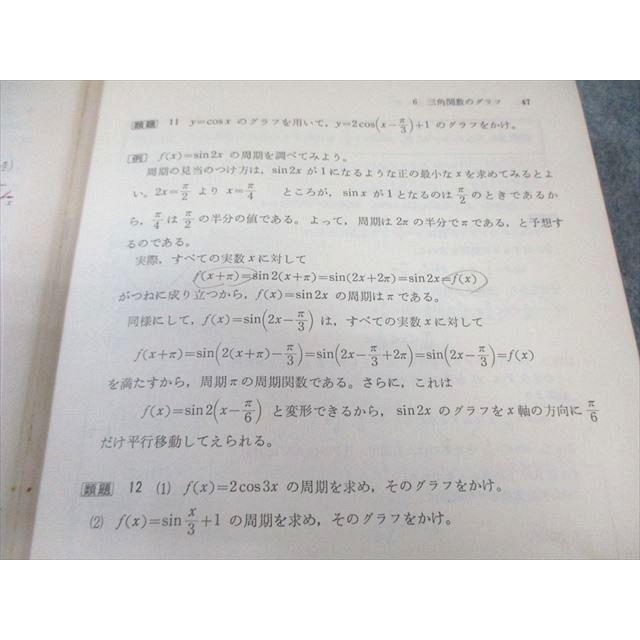 6 三角関数のグラフ 47
類題 11 y=cosx のグラフを用いて，y=2cos(x−π/3)+1 のグラフをかけ。
例 f(x)=sin2x の周期を調べてみよう。
周期の見当のつけ方は，sin2x が1になるような正の最小な x を求めてみるとよ
い。2x=π/2 より x=π/4 ところが，sinx が1となるのは π/2 のときであるか
ら，π/4 は π/2 の半分の値である。よって，周期は 2π の半分でπである，と予想す
るのである。
実際，すべての実数 x に対して
f(x+π)=sin2(x+π)=sin(2x+2π)=sin2x=f(x)
がつねに成り立つから，f(x)=sin2x の周期はπである。
同様にして，f(x)=sin(2x−π/3) は，すべての実数 x に対して
f(x+π)=sin(2(x+π)−π/3)=sin(2x−π/3+2π)=sin(2x−π/3)=f(x)
を満たすから，周期πの周期関数である。さらに，これは
f(x)=sin2(x−π/6) と変形できるから，sin2x のグラフを x 軸の方向に π/6
だけ平行移動してえられる。
類題 12 (1) f(x)=2cos3x の周期を求め，そのグラフをかけ。
(2) f(x)=sin x/3+1 の周期を求め，そのグラフをかけ。